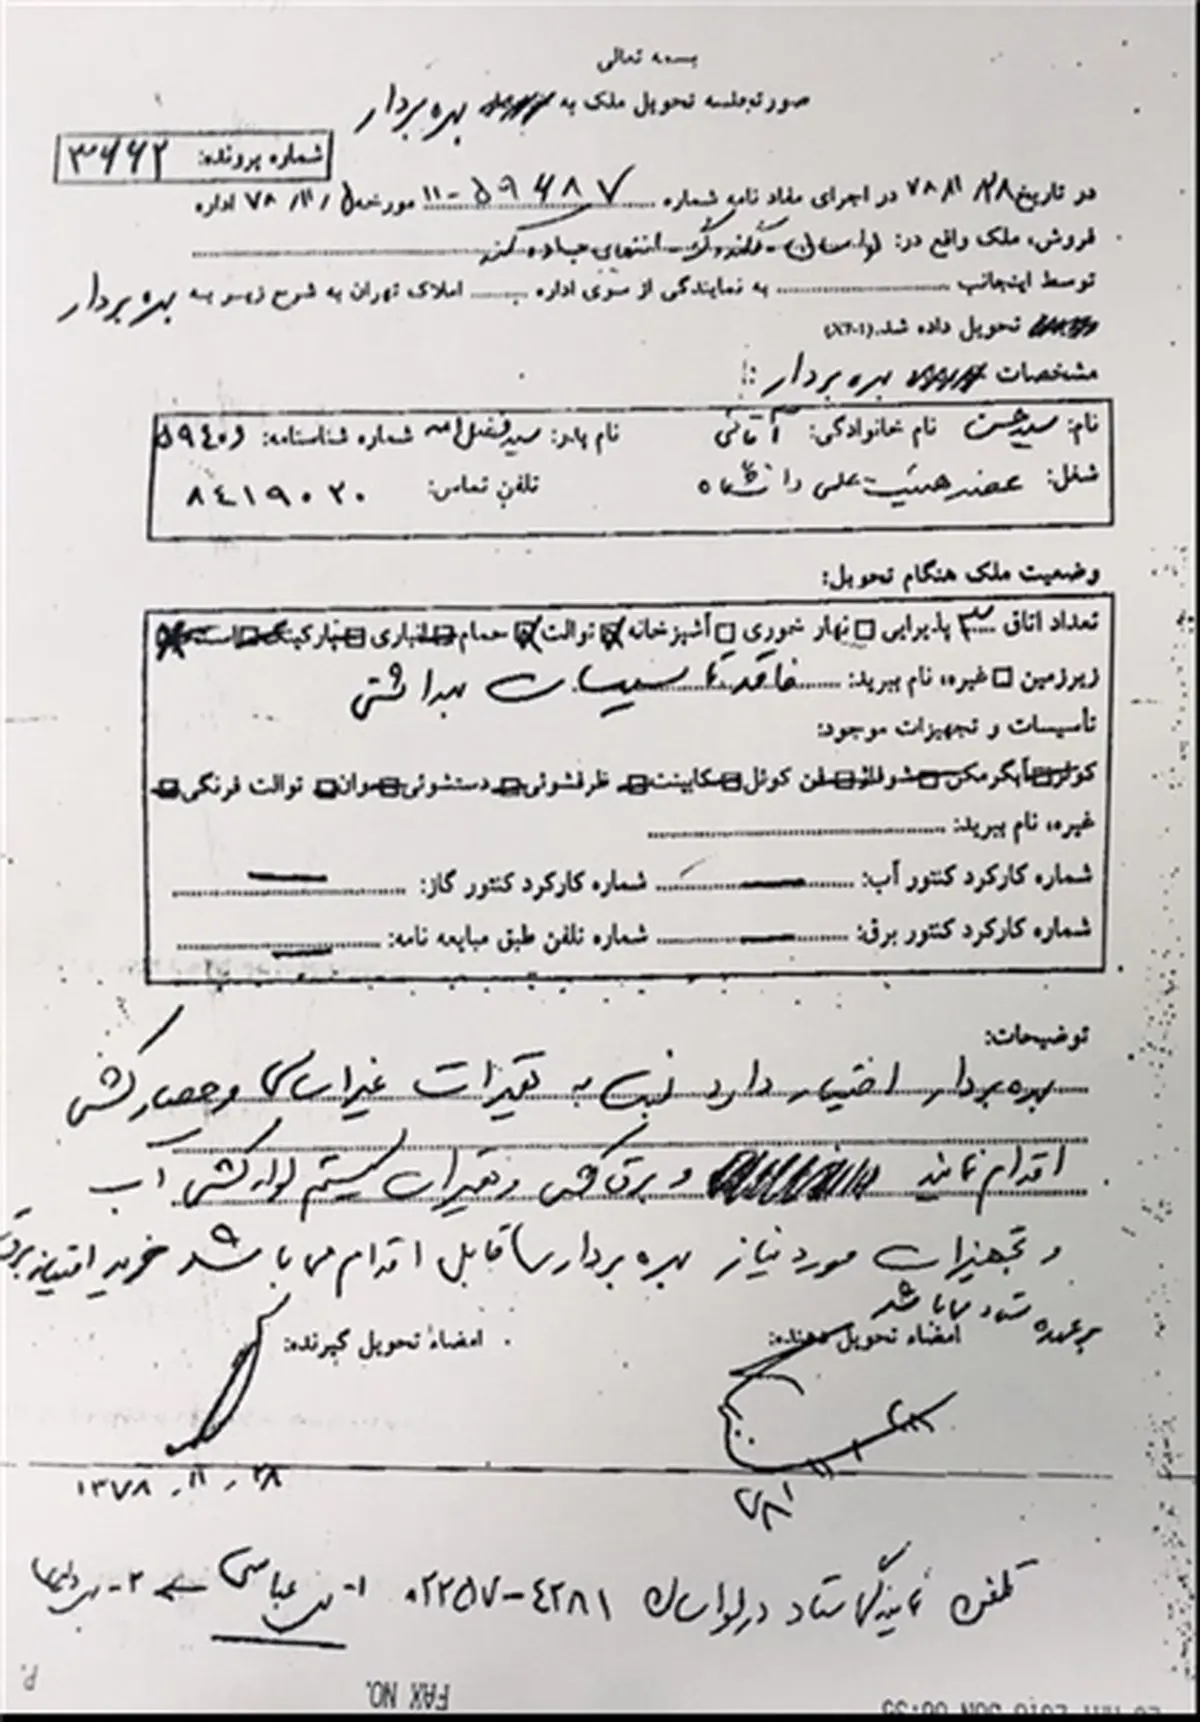 بسمه تعالی
صورتجلسه تحویل ملک به بهره بردار
شماره پرونده: ۳۶۶۲
در تاریخ ۷۸/۱۱/۲۸ در اجرای مفاد نامه شماره ۵۹۴۸۷-۱۱ مورخه ۷۸/۱۱/۵ اداره
فروش، ملک واقع در: لواسان - کندرگ - انتهای جاده کند
توسط اینجانب به نمایندگی از سوی اداره املاک تهران به شرح زیر به بهره بردار
تحویل داده شد.
مشخصات بهره بردار:
نام: سید حسن نام خانوادگی: آقائی نام پدر: سید فضل اله شماره شناسنامه: ۵۹۴۰۶
شغل: عضو هیئت علمی دانشگاه تلفن تماس: ۸۴۱۹۰۲۰
وضعیت ملک هنگام تحویل:
تعداد اتاق ۳ پذیرایی نهار خوری آشپزخانه توالت حمام انباری پارکینگ
زیرزمین غیره، نام ببرید: فاقد تاسیسات بهداشتی
تأسیسات و تجهیزات موجود:
کولر آبگرمکن شوفاژ فن کوئل کابینت ظرفشوئی دستشوئی وان توالت فرنگی
غیره، نام ببرید:
شماره کارکرد کنتور آب: شماره کارکرد کنتور گاز:
شماره کارکرد کنتور برق: شماره تلفن طبق مبایعه نامه:
توضیحات:
بهره بردار اختیار دارد نسبت به تعمیرات غیراساسی و حصارکشی
اقدام نماید و برق کشی و تعمیرات سیستم لوله کشی آب
و تجهیزات مورد نیاز بهره بردار قابل اقدام می باشد خرید امتیاز برق
بر عهده ستاد می باشد
امضاء تحویل دهنده: امضاء تحویل گیرنده:
۱۳۷۸.۱۱.۲۸
تلفن نمایندگی ستاد در لواسان ۰۲۲۵۷-۴۲۸۱ ۱- عباسی ۲-
FAX NO.
P.